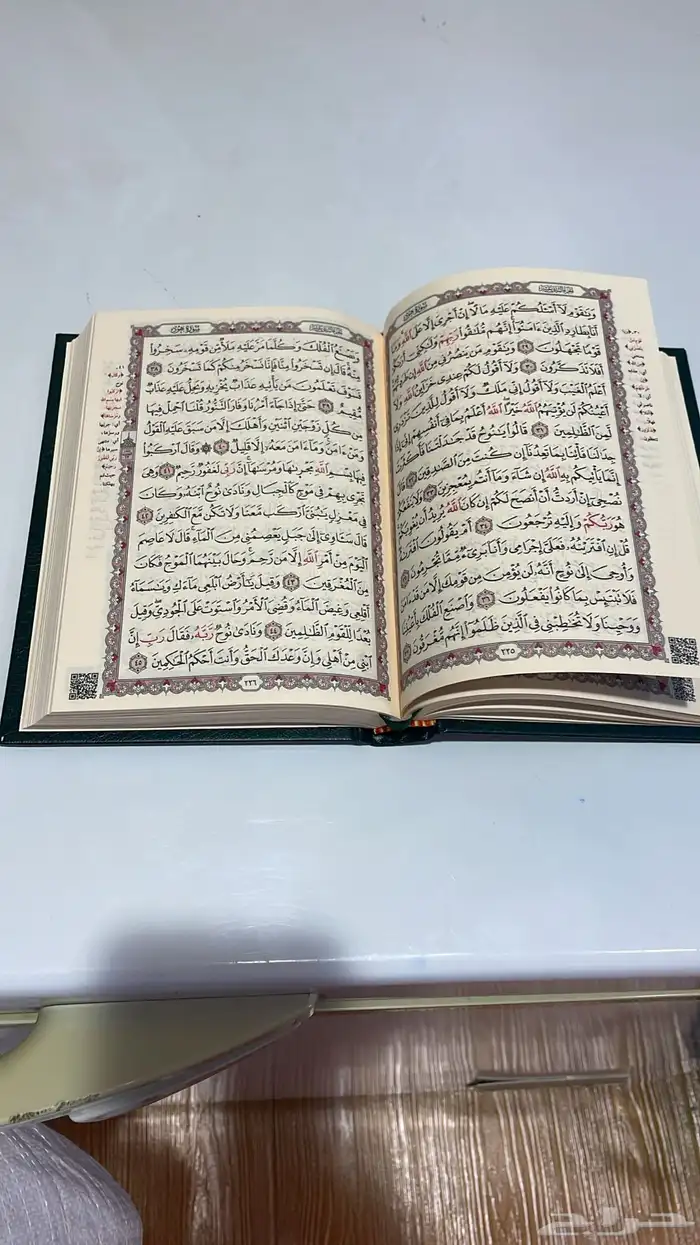 سُورَةُ هُودٍ
وَيَٰقَوْمِ لَآ أَسْـَٔلُكُمْ عَلَيْهِ مَالًا ۖ إِنْ أَجْرِىَ إِلَّا عَلَى ٱللَّهِ ۚ وَمَآ
أَنَا۠ بِطَارِدِ ٱلَّذِينَ ءَامَنُوٓا۟ ۚ إِنَّهُم مُّلَٰقُوا۟ رَبِّهِمْ وَلَٰكِنِّىٓ أَرَىٰكُمْ
قَوْمًا تَجْهَلُونَ ٢٩ وَيَٰقَوْمِ مَن يَنصُرُنِى مِنَ ٱللَّهِ إِن طَرَدتُّهُمْ ۚ
أَفَلَا تَذَكَّرُونَ ٣٠ وَلَآ أَقُولُ لَكُمْ عِندِى خَزَآئِنُ ٱللَّهِ وَلَآ
أَعْلَمُ ٱلْغَيْبَ وَلَآ أَقُولُ إِنِّى مَلَكٌ وَلَآ أَقُولُ لِلَّذِينَ تَزْدَرِىٓ
أَعْيُنُكُمْ لَن يُؤْتِيَهُمُ ٱللَّهُ خَيْرًا ۖ ٱللَّهُ أَعْلَمُ بِمَا فِىٓ أَنفُسِهِمْ ۖ إِنِّىٓ إِذًا
لَّمِنَ ٱلظَّٰلِمِينَ ٣١ قَالُوا۟ يَٰنُوحُ قَدْ جَٰدَلْتَنَا فَأَكْثَرْتَ
جِدَٰلَنَا فَأْتِنَا بِمَا تَعِدُنَآ إِن كُنتَ مِنَ ٱلصَّٰدِقِينَ ٣٢ قَالَ
إِنَّمَا يَأْتِيكُم بِهِ ٱللَّهُ إِن شَآءَ وَمَآ أَنتُم بِمُعْجِزِينَ ٣٣ وَلَا يَنفَعُكُمْ
نُصْحِىٓ إِنْ أَرَدتُّ أَنْ أَنصَحَ لَكُمْ إِن كَانَ ٱللَّهُ يُرِيدُ أَن يُغْوِيَكُمْ ۚ
هُوَ رَبُّكُمْ وَإِلَيْهِ تُرْجَعُونَ ٣٤ أَمْ يَقُولُونَ ٱفْتَرَىٰهُ ۖ
قُلْ إِنِ ٱفْتَرَيْتُهُۥ فَعَلَىَّ إِجْرَامِى وَأَنَا۠ بَرِىٓءٌ مِّمَّا تُجْرِمُونَ ٣٥
وَأُوحِىَ إِلَىٰ نُوحٍ أَنَّهُۥ لَن يُؤْمِنَ مِن قَوْمِكَ إِلَّا مَن قَدْ ءَامَنَ
فَلَا تَبْتَئِسْ بِمَا كَانُوا۟ يَفْعَلُونَ ٣٦ وَٱصْنَعِ ٱلْفُلْكَ بِأَعْيُنِنَا
وَوَحْيِنَا وَلَا تُخَٰطِبْنِى فِى ٱلَّذِينَ ظَلَمُوٓا۟ ۚ إِنَّهُم مُّغْرَقُونَ ٣٧
٢٢٥
سُورَةُ هُودٍ
وَيَصْنَعُ ٱلْفُلْكَ وَكُلَّمَا مَرَّ عَلَيْهِ مَلَأٌ مِّن قَوْمِهِۦ سَخِرُوا۟
مِنْهُ ۚ قَالَ إِن تَسْخَرُوا۟ مِنَّا فَإِنَّا نَسْخَرُ مِنكُمْ كَمَا تَسْخَرُونَ ٣٨
فَسَوْفَ تَعْلَمُونَ مَن يَأْتِيهِ عَذَابٌ يُخْزِيهِ وَيَحِلُّ عَلَيْهِ عَذَابٌ
مُّقِيمٌ ٣٩ حَتَّىٰٓ إِذَا جَآءَ أَمْرُنَا وَفَارَ ٱلتَّنُّورُ قُلْنَا ٱحْمِلْ فِيهَا
مِن كُلٍّ زَوْجَيْنِ ٱثْنَيْنِ وَأَهْلَكَ إِلَّا مَن سَبَقَ عَلَيْهِ ٱلْقَوْلُ
وَمَنْ ءَامَنَ ۚ وَمَآ ءَامَنَ مَعَهُۥٓ إِلَّا قَلِيلٌ ٤٠ ۞ وَقَالَ ٱرْكَبُوا۟
فِيهَا بِسْمِ ٱللَّهِ مَجْر۪ىٰهَا وَمُرْسَىٰهَآ ۚ إِنَّ رَبِّى لَغَفُورٌ رَّحِيمٌ ٤١ وَهِىَ
تَجْرِى بِهِمْ فِى مَوْجٍ كَٱلْجِبَالِ وَنَادَىٰ نُوحٌ ٱبْنَهُۥ وَكَانَ
فِى مَعْزِلٍ يَٰبُنَىَّ ٱرْكَب مَّعَنَا وَلَا تَكُن مَّعَ ٱلْكَٰفِرِينَ ٤٢
قَالَ سَـَٔاوِىٓ إِلَىٰ جَبَلٍ يَعْصِمُنِى مِنَ ٱلْمَآءِ ۚ قَالَ لَا عَاصِمَ
ٱلْيَوْمَ مِنْ أَمْرِ ٱللَّهِ إِلَّا مَن رَّحِمَ ۚ وَحَالَ بَيْنَهُمَا ٱلْمَوْجُ فَكَانَ
مِنَ ٱلْمُغْرَقِينَ ٤٣ وَقِيلَ يَٰٓأَرْضُ ٱبْلَعِى مَآءَكِ وَيَٰسَمَآءُ
أَقْلِعِى وَغِيضَ ٱلْمَآءُ وَقُضِىَ ٱلْأَمْرُ وَٱسْتَوَتْ عَلَى ٱلْجُودِىِّ ۖ وَقِيلَ
بُعْدًا لِّلْقَوْمِ ٱلظَّٰلِمِينَ ٤٤ وَنَادَىٰ نُوحٌ رَّبَّهُۥ فَقَالَ رَبِّ إِنَّ
ٱبْنِى مِنْ أَهْلِى وَإِنَّ وَعْدَكَ ٱلْحَقُّ وَأَنتَ أَحْكَمُ ٱلْحَٰكِمِينَ ٤٥
٢٢٦
حراج